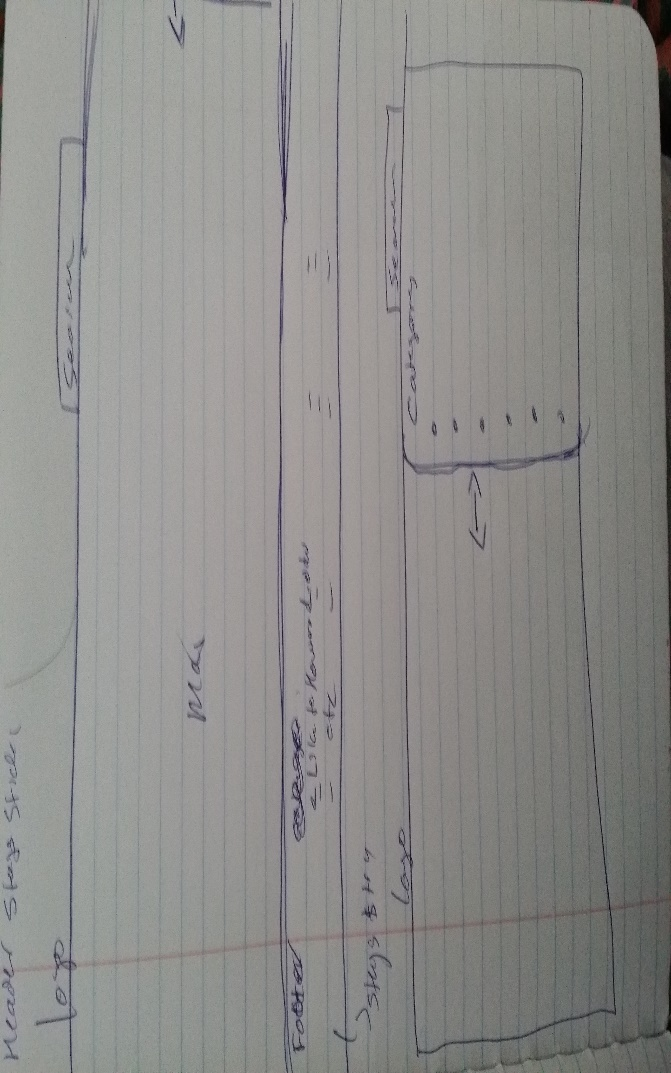 Header Stays Sticky
Logo
Search
Footer
Link to Home
etc
Stays
Logo
Search
Category